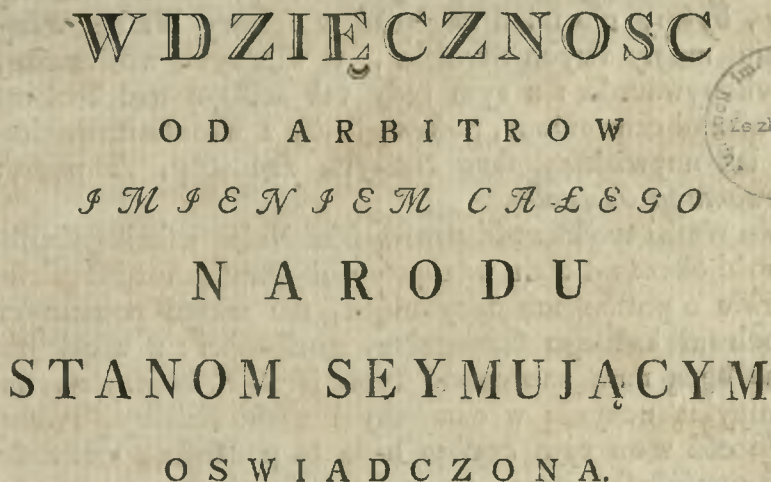 WDZIĘCZNOSC
OD ARBITROW
IMIENIEM CAŁEGO
NARODU
STANOM SEYMUJĄCYM
OSWIADCZONA.